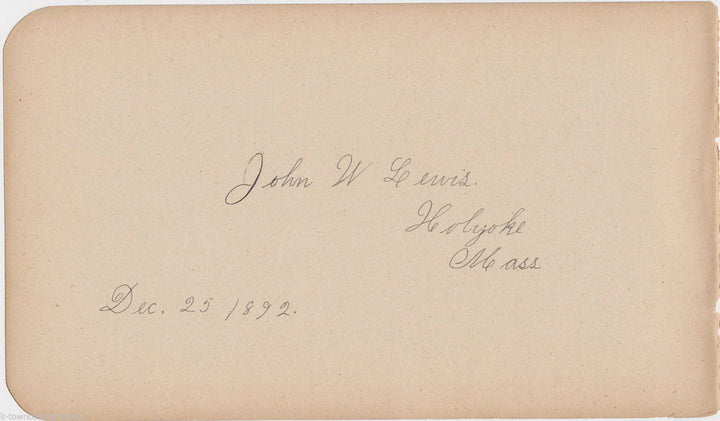 John W Lewis.
Holyoke
Mass
Dec. 25 1892.